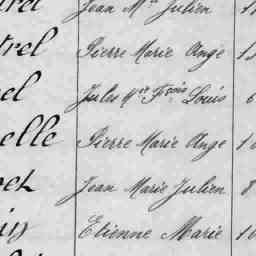 Jean Mie Julien
trel Pierre Marie Ange
el Jules Mie Fçois Louis
elle Pierre Marie Ange
Jean Marie Julien 8
in Etienne Marie